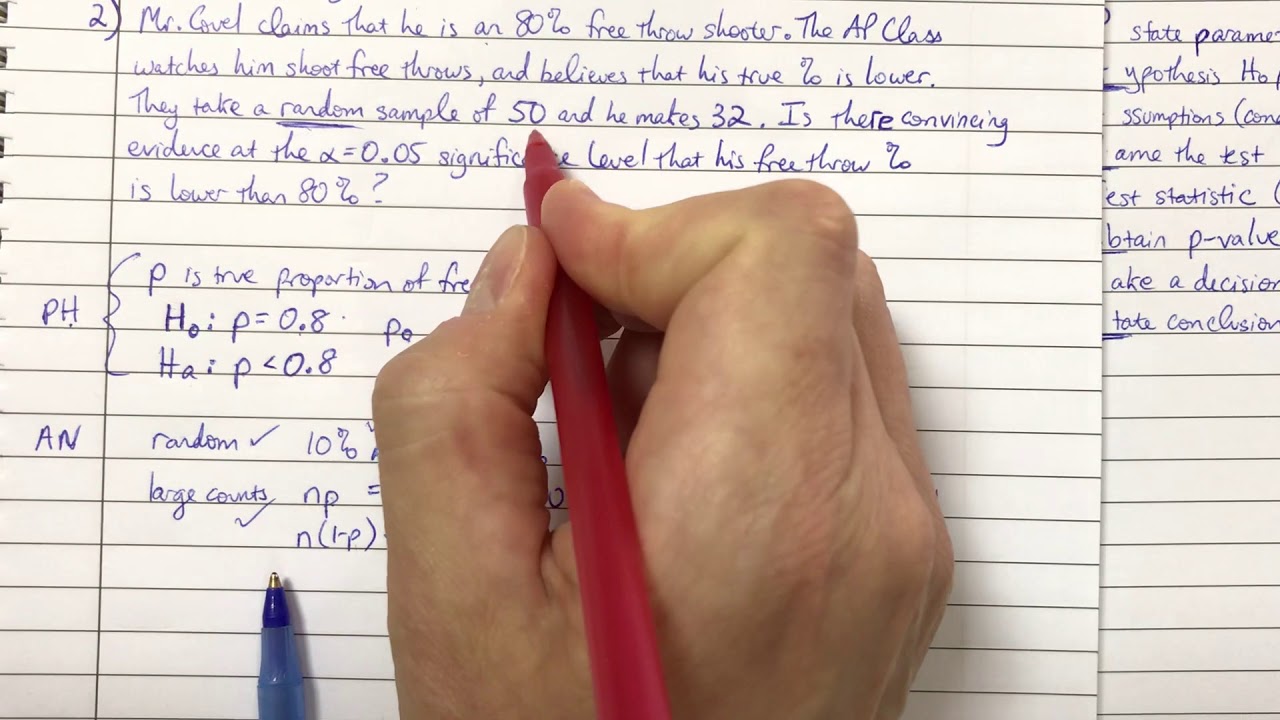 2) Mr. Covel claims that he is an 80% free throw shooter. The AP Class
watches him shoot free throws, and believes that his true % is lower.
They take a random sample of 50 and he makes 32. Is there convincing
evidence at the α=0.05 level that his free throw %
is lower than 80%?
p is true proportion of
PH
H₀: p = 0.8 p₀
Hₐ: p < 0.8
AN random ✓ 10%
large counts ✓ np =
n(1-p)
state
H₀
test
statistic
p-value
a decision